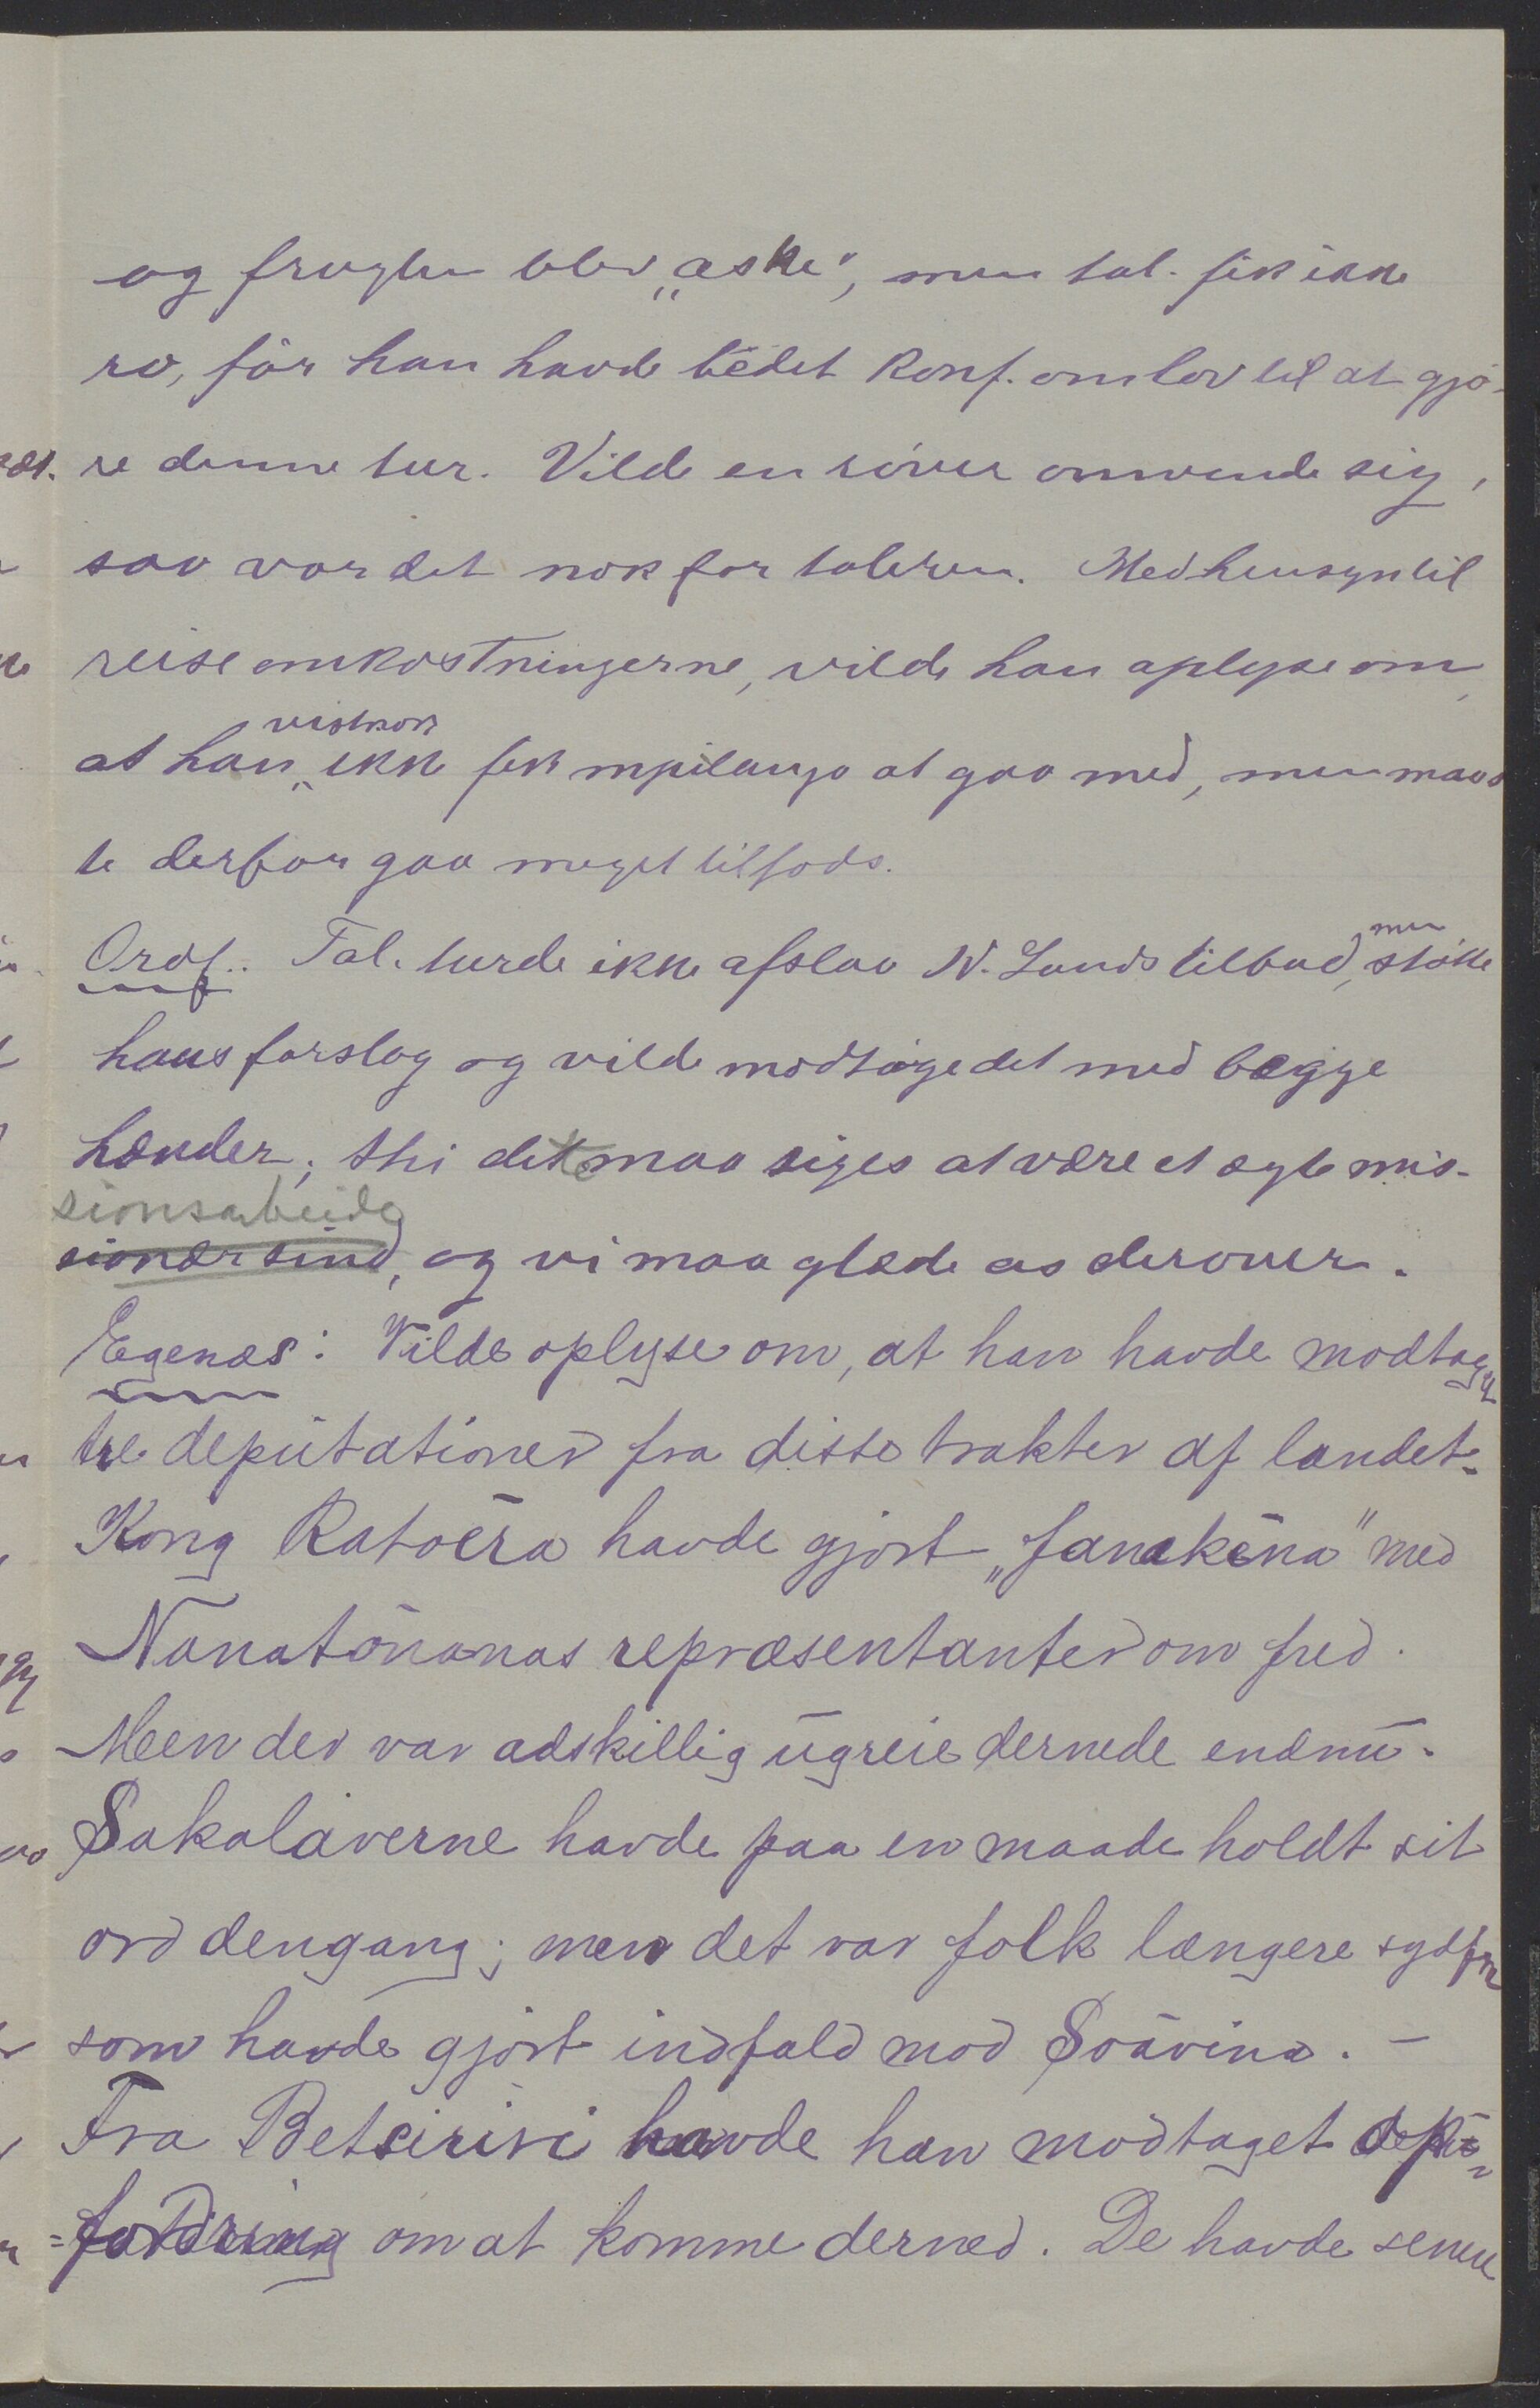 og frugten blev „aske", men tal. fik ikke
ro, før han havde bedet Konf. om lov til at gjø-
re denne tur. Vilde en røver omvende sig,
saa var det nok for taleren. Med hensyn til
reiseomkostningerne, vilde han oplyse om,
at han vistnok ikke fik mpilanja at gaa med, men maat
te derfor gaa meget tilfods.
Ordf.. Tal. turde ikke afslaa N. Lunds tilbud, men støtte
hans forslag og vilde modtage det med begge
hænder; thi dette maa siges at være et ægte mis-
sionsarbeide
sionærsind, og vi maa glæde os derover.
Egenæs: Vilde oplyse om, at han havde modtaget
tre deputationer fra disse trakter af landet.
Kong Ratoera havde gjort „fanekena" med
Nanatonanas repræsentanter om fred.
Men der var adskillig ugreie dernede endnu.
Sakalaverne havde paa en maade holdt sit
ord dengang; men det var folk længere sydfra
som havde gjort indfald mod Soavina. –
Fra Betsiriri havde han modtaget
om at komme derned. De havde senere